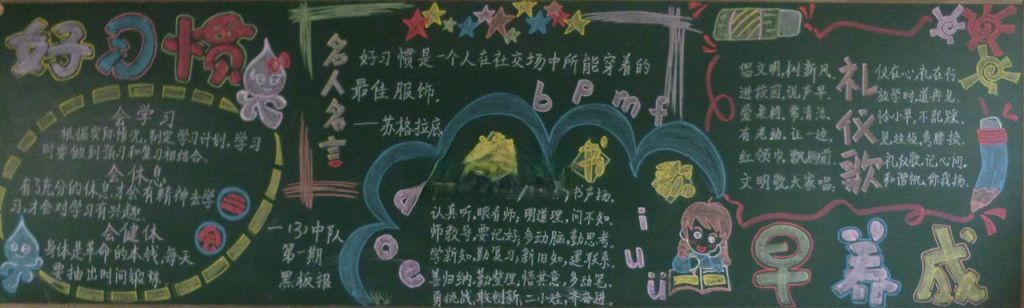 好习惯
会学习
根据实际情况,制定学习计划,学习
时要做到预习和复习相结合。
会休息
有了充分的休息,才会有精神去学
习,才会对学习有兴趣。
会健体
身体是革命的本钱,每天
要抽出时间锻炼。
名人名言
好习惯是一个人在社交场中所能穿着的
最佳服饰。
——苏格拉底
一(3)中队
第一期
黑板报
b p m f
d o e
i u ü
书
歌
书声扬。
认真听,眼看师,明道理,问不知,
师教导,要记好,多动脑,勤思考,
学新知,勤复习,新旧知,速联系,
善归纳,勤整理,悟其意,多动笔,
勇挑战,敢创新,二小娃,齐奋进。
礼仪歌
倡文明,树新风,
进校园,说声早,
爱桌椅,常清洁,
有老幼,让一边,
红领巾,飘胸前,
文明歌,大家唱;
仪在心,礼在行
放学时,道再见,
见垃圾,弯腰捡,
礼仪歌,记心间,
和谐帆,你我扬。
早养成